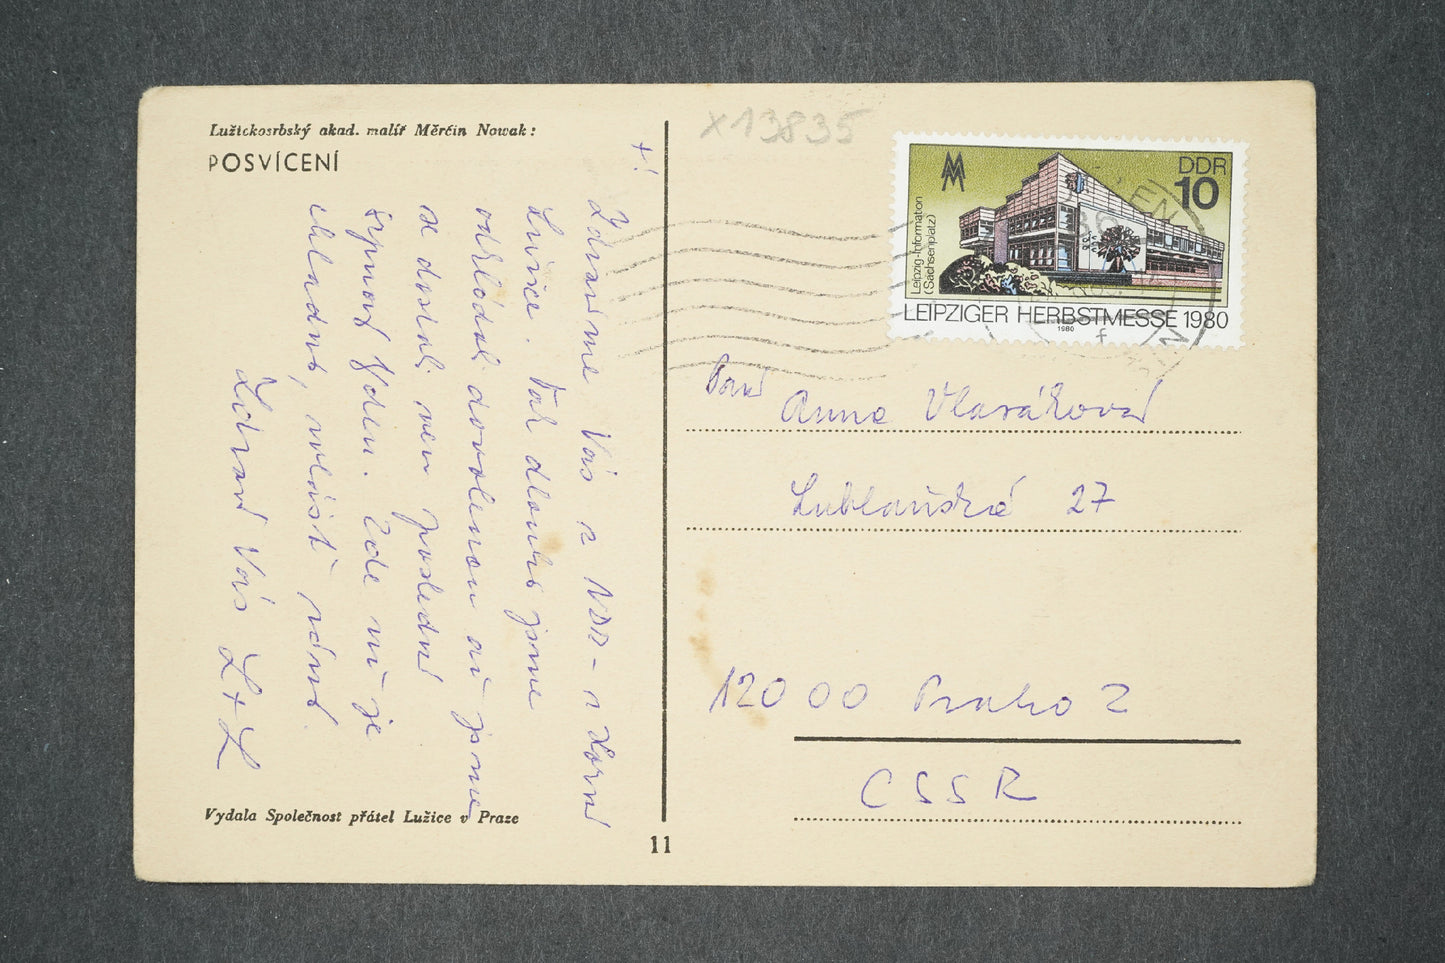 Lužickosrbský akad. malíř Měrćin Nowak:
POSVÍCENÍ
Zdravíme Vás z NDR - z Horní
Lužice. Tak dlouho jsme
odkládali dovolenou až jsme
se dostali ven poslední
srpnový týden. Zde už je
chladno, zvlášť ráno.
Zdraví Vás L+L
Vydala Společnost přátel Lužice v Praze
11
X13835
DDR
10
Leipzig-Information
(Sachsenplatz)
LEIPZIGER HERBSTMESSE 1980
1980
f
Paní Anna Vlasáková
Lublaňská 27
12000 Praha 2
CSSR